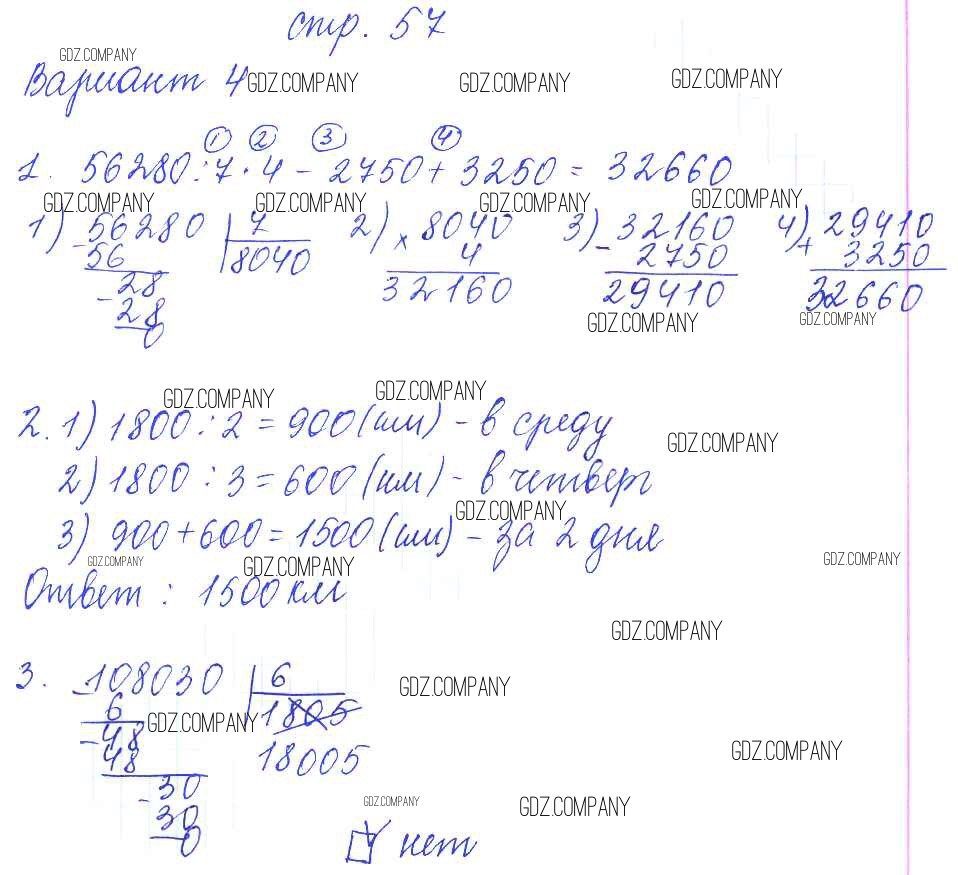 стр. 57
GDZ.COMPANY
Вариант 4 GDZ.COMPANY GDZ.COMPANY GDZ.COMPANY
① ② ③ ④
1. 56280 : 7 · 4 − 2750 + 3250 = 32660
GDZ.COMPANY GDZ.COMPANY GDZ.COMPANY GDZ.COMPANY
1) 56280 | 7 2) × 8040 3) − 32160 4) + 29410
− 56 8040 4 2750 3250
− 28 32160 29410 32660
28
0
GDZ.COMPANY GDZ.COMPANY
GDZ.COMPANY GDZ.COMPANY
2. 1) 1800 : 2 = 900 (км) − в среду
GDZ.COMPANY
2) 1800 : 3 = 600 (км) − в четверг
GDZ.COMPANY
3) 900 + 600 = 1500 (км) − за 2 дня
GDZ.COMPANY GDZ.COMPANY GDZ.COMPANY
Ответ : 1500 км
GDZ.COMPANY
3. − 108030 | 6
GDZ.COMPANY
6 GDZ.COMPANY 1805
− 48 18005
48
GDZ.COMPANY
− 30
30 GDZ.COMPANY GDZ.COMPANY
0
☑ нет